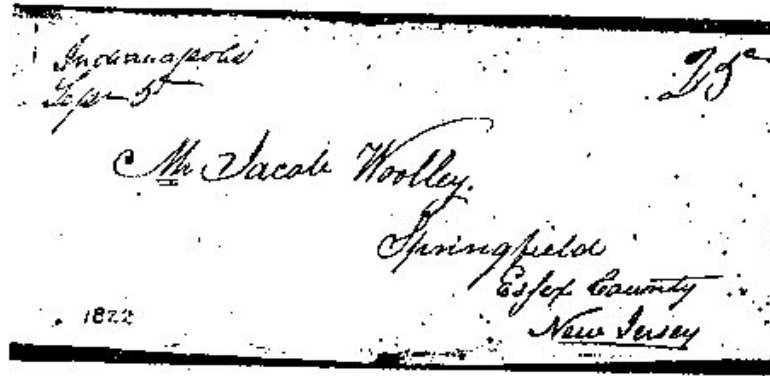 Indianapolis
Sepr 5th
25c
Mr Jacob Woolley.
Springfield
Essex County
New Jersey
1822